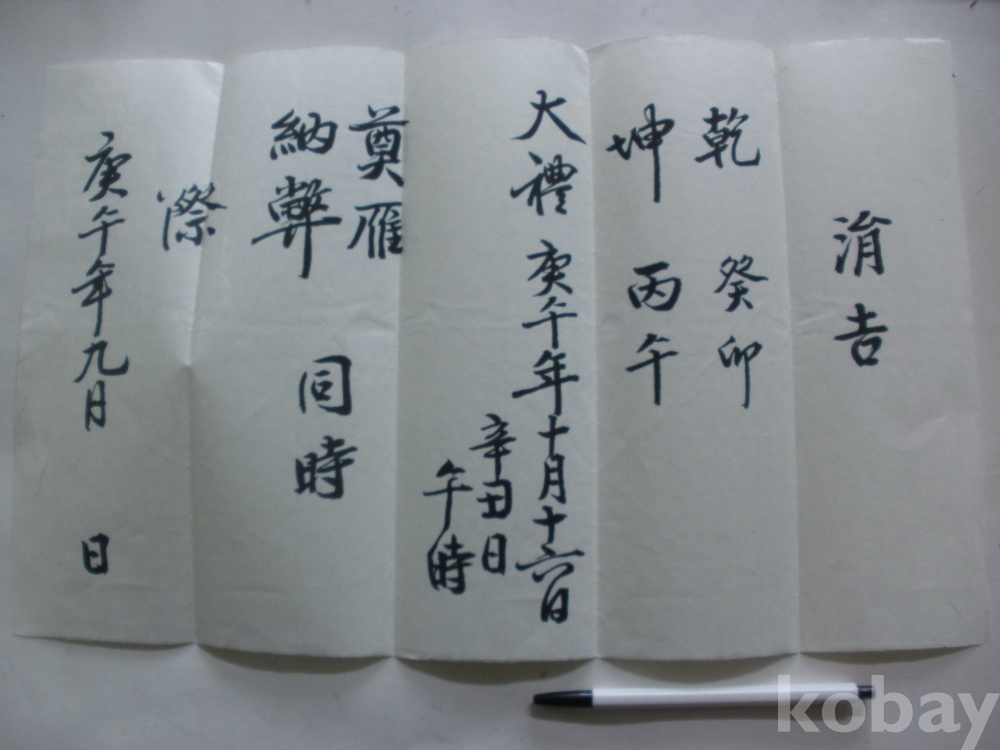 涓吉
乾 癸卯
坤 丙午
大禮 庚午年十月十六日
辛丑日
午時
奠雁
納幣 同時
際
庚午年九月 日
kobay